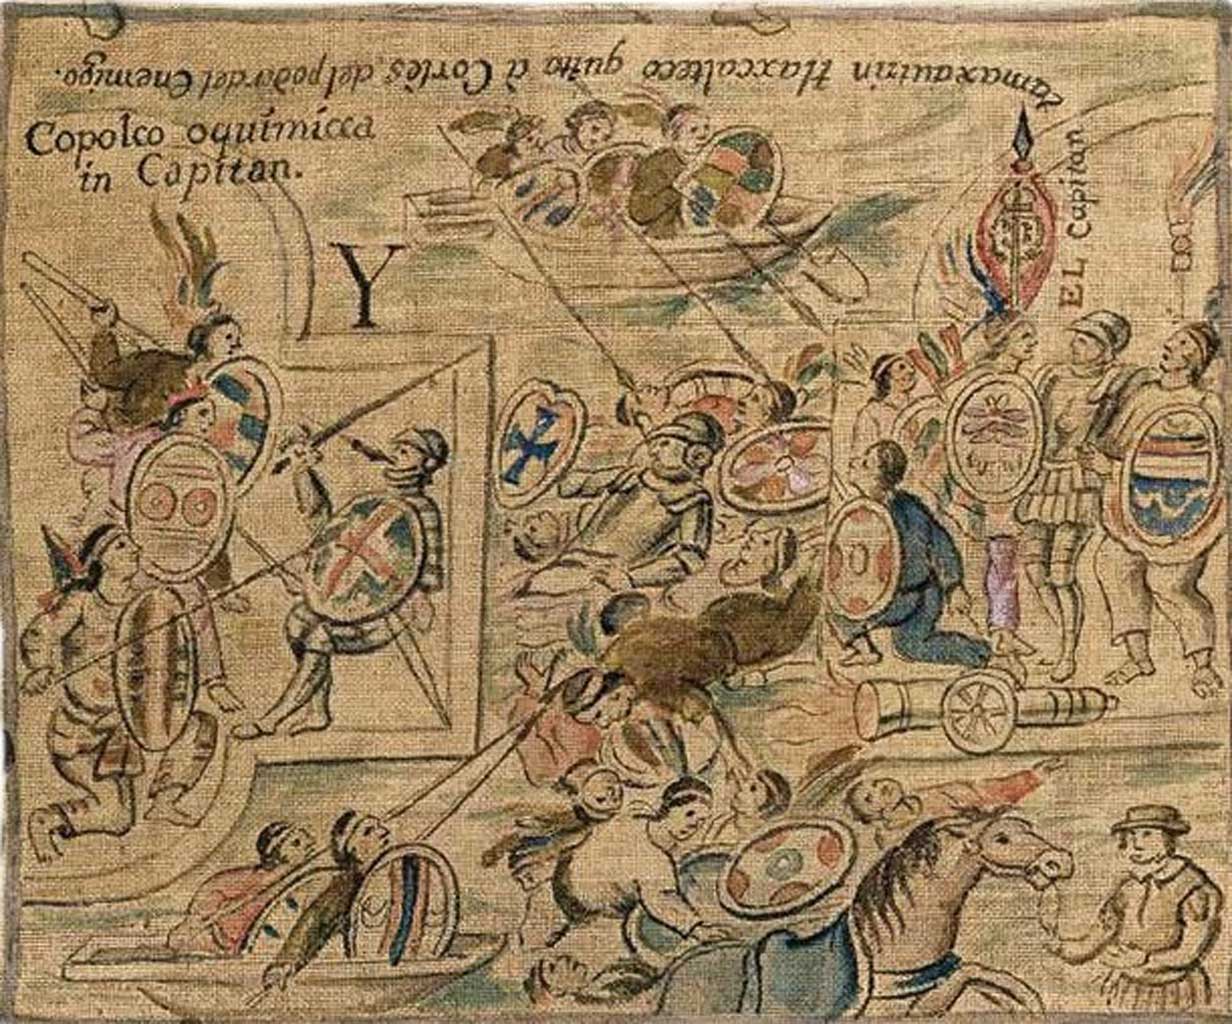 tamaxautzin tlaxcalteco quito à Cortès, del poder del Enemigo.
Copolco oquimicca
in Capitan.
Y
EL Capitan